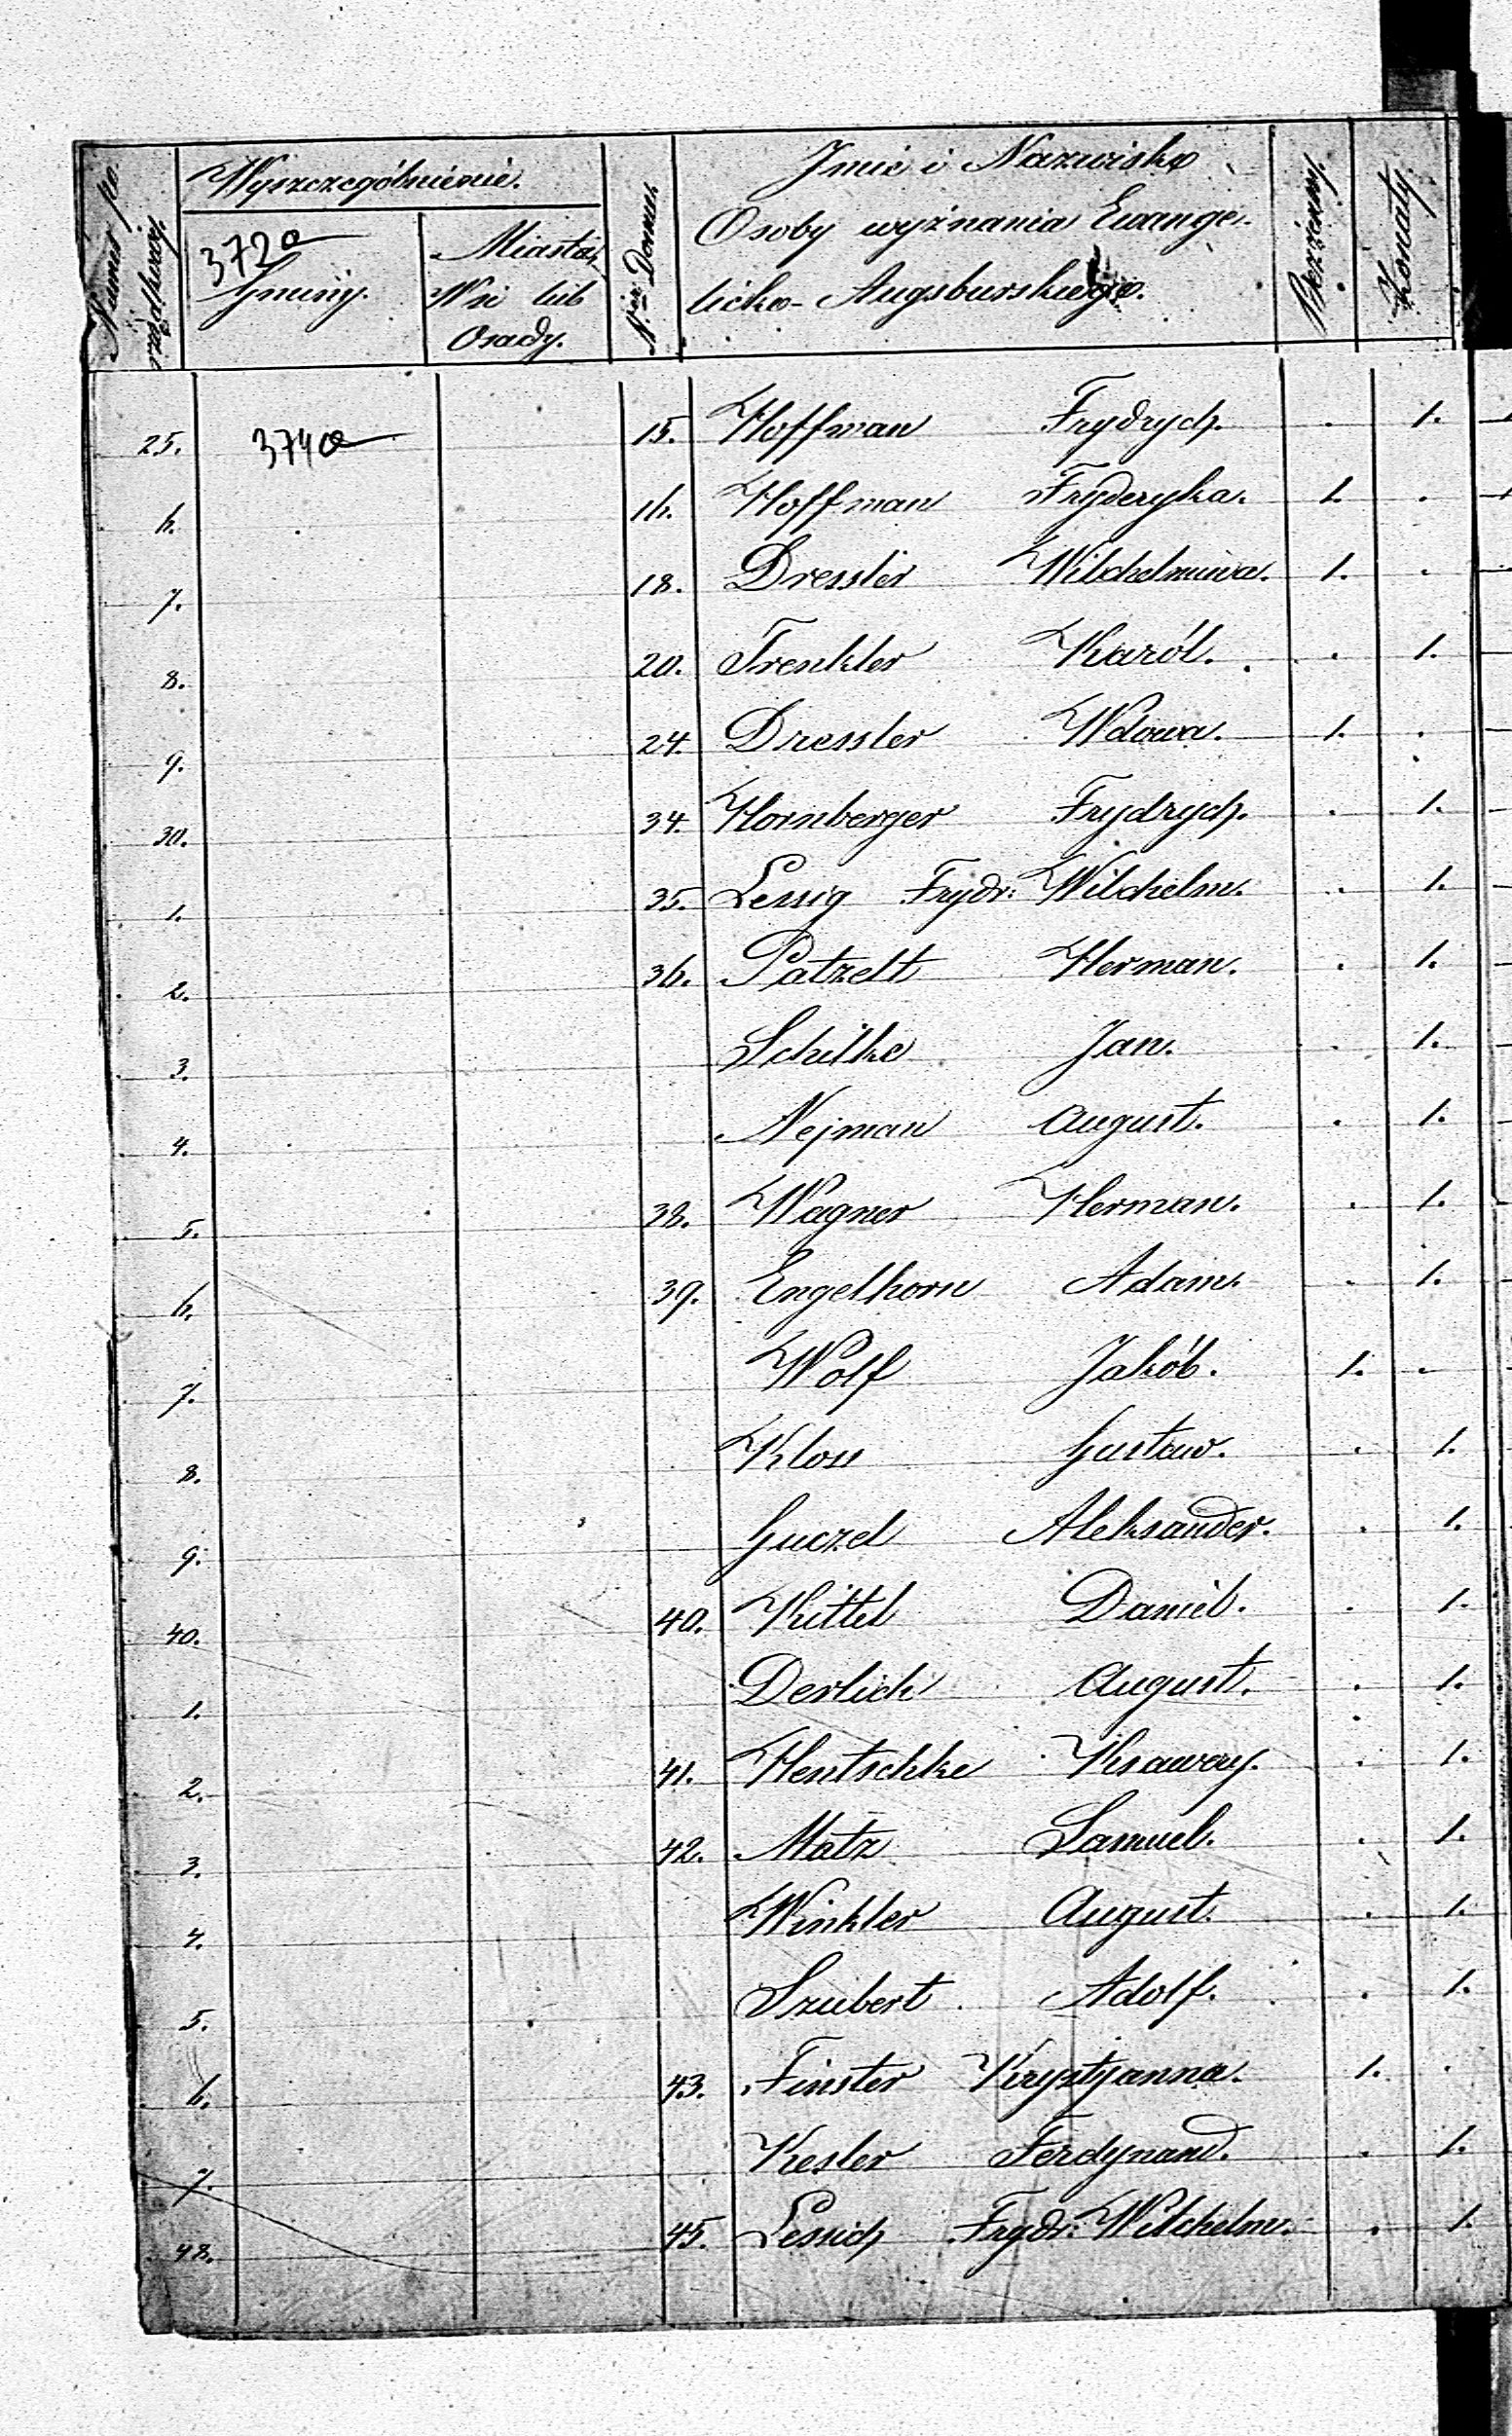 Numer po-
rządkowy.
Wyszczególnienie.
372a
Gminy.
Miasta,
Wsi lub
Osady.
Ner Domu.
Imie i Nazwisko
Osoby wyznania Ewange-
licko-Augsburskiego.
Bezżenny.
Żonaty.
25. 374a 15. Hoffman Frydrych. . 1.
6. 16. Hoffman Fryderyka. 1. .
7. 18. Dressler Wilchelmina. 1. .
8. 20. Trenkler Karól. . 1.
9. 24. Dressler Wdowa. 1. .
30. 34. Hornberger Frydrych. . 1.
1. 35. Lessig Frydr: Wilchelm. . 1.
2. 36. Patzelt Herman. . 1.
3. Schilke Jan. . 1.
4. Nejman August. . 1.
5. 38. Wagner Herman. . 1.
6. 39. Engelhorn Adam. . 1.
7. Wolf Jakób. 1. .
8. Kloss Gustaw. . 1.
9. Guczel Aleksander. . 1.
40. 40. Kittel Daniel. . 1.
1. Derlich August. . 1.
2. 41. Hentschke Ksawery. . 1.
3. 42. Matz Samuel. . 1.
4. Winkler August. . 1.
5. Szubert Adolf. . 1.
6. 43. Finster Krystjanna. 1. .
7. Kesler Ferdynand. . 1.
48. 45. Lessich Frydr: Wilchelm. . 1.